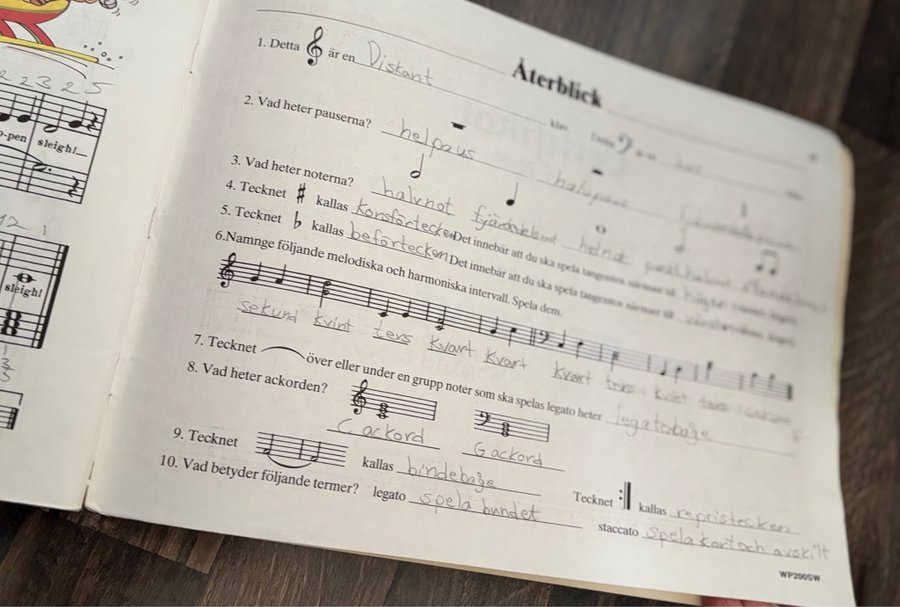 2 2 3 2 5
o-pen sleigh!
12 1
sleigh!
Återblick
1. Detta är en Diskant klav. Detta är en
2. Vad heter pauserna? helpaus halvpaus
3. Vad heter noterna? halvnot helnot
4. Tecknet ♯ kallas Det innebär att du ska spela tangenten närmast till höger
5. Tecknet ♭ kallas beförtecken Det innebär att du ska spela tangenten närmast till
6.Namnge följande melodiska och harmoniska intervall. Spela dem.
sekund kvint ters kvart kvart kvart ters kvint ters
7. Tecknet över eller under en grupp noter som ska spelas legato heter legatobåge
8. Vad heter ackorden?
C ackord G ackord
9. Tecknet kallas bindebåge Tecknet kallas repristecken
10. Vad betyder följande termer? legato spela bundet staccato spela kort och avskilt
WP200SW